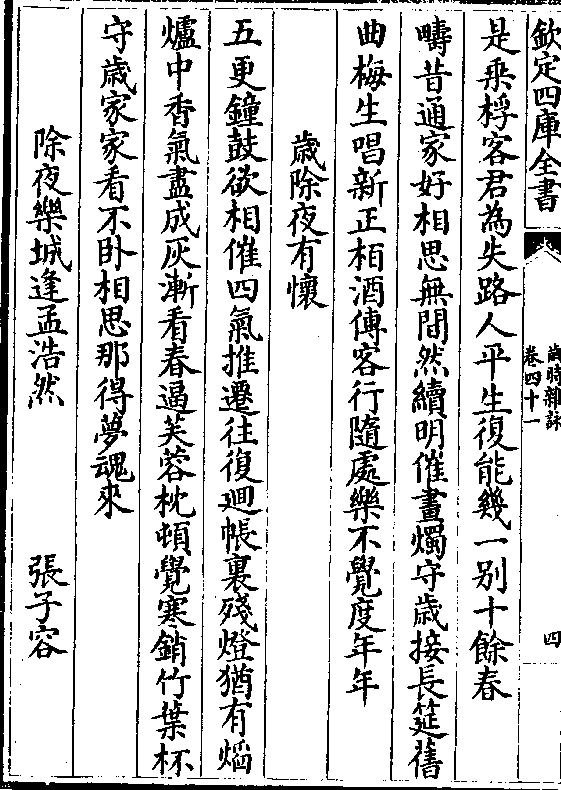 欽定四庫全書
歲時雜詠
卷四十一
四
是乗桴客君為失路人平生復能幾一别十餘春
疇昔通家好相思無間然續明催畫燭守歳接長筵舊
曲梅生唱新正栢酒傳客行隨處樂不覺度年年
歳除夜有懷
五更鐘鼓欲相催四氣推遷往復迴帳裏殘燈猶有熖
爐中香氣盡成灰漸看春逼芙蓉枕頓覺寒銷竹葉杯
守歳家家看不卧相思那得夢魂來
除夜樂城逢孟浩然 張子容